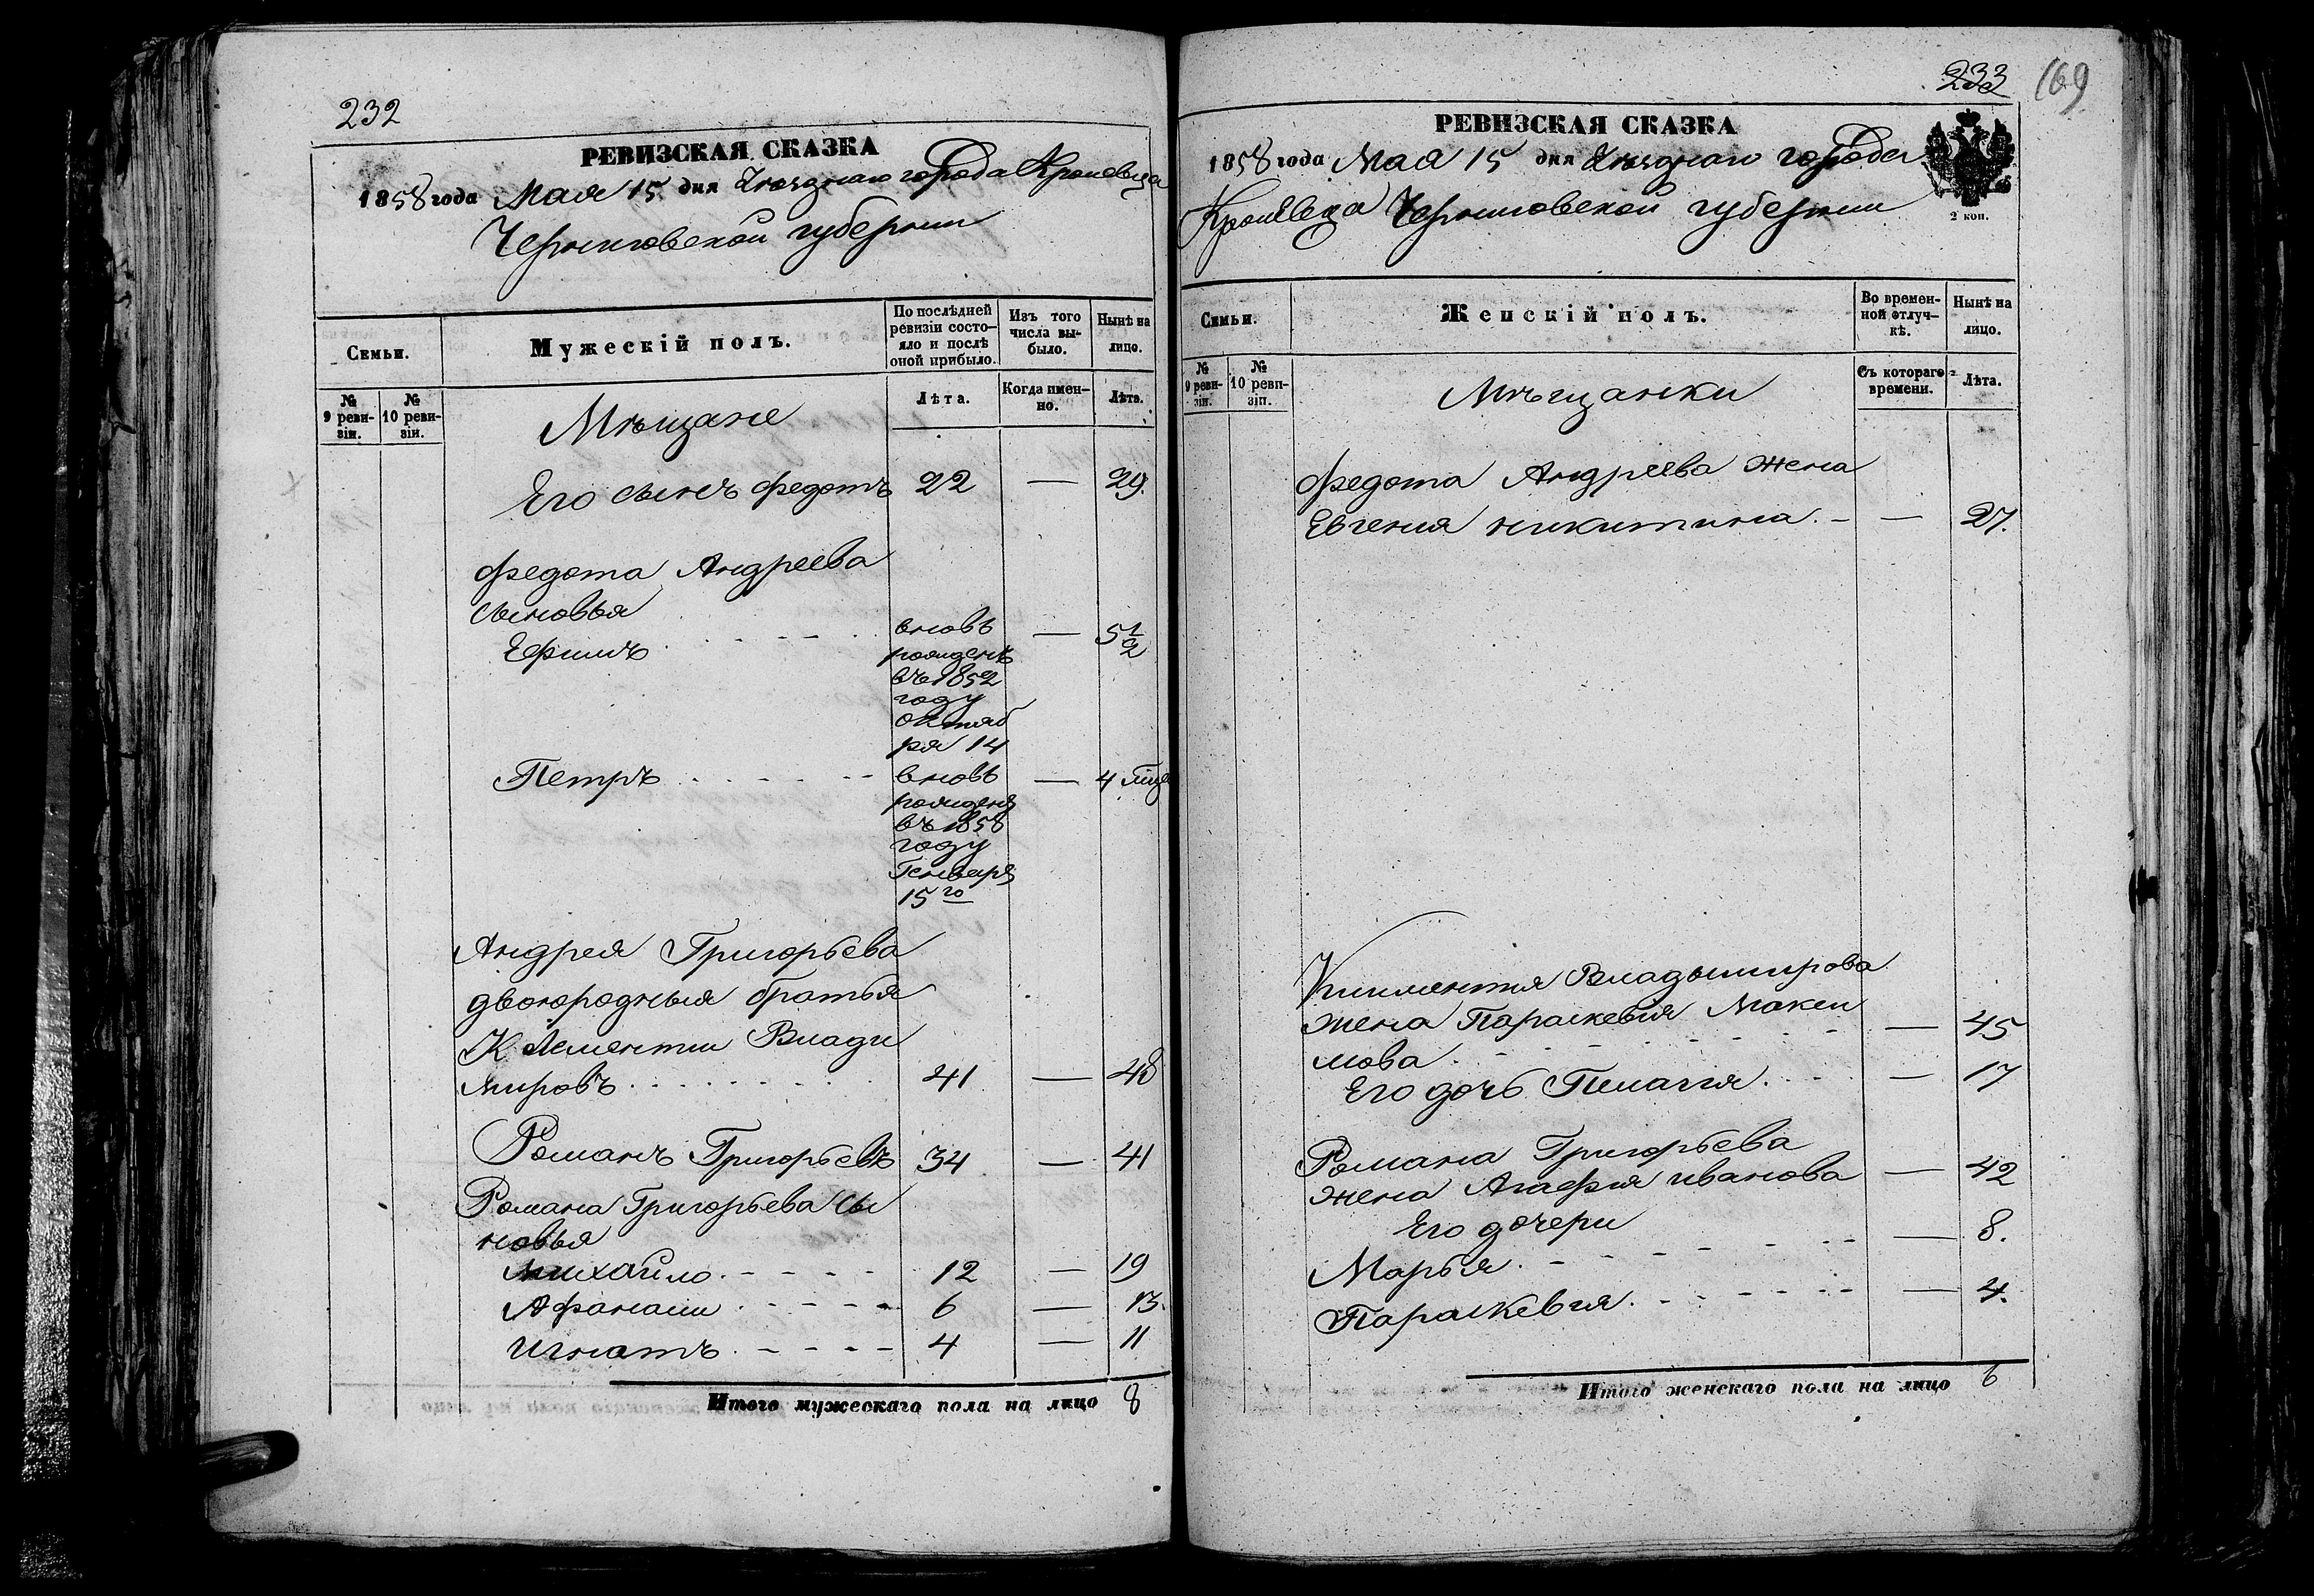 232
РЕВИЗСКАЯ СКАЗКА
1858 года Мая 15 дня Уѣзднаго города Кролевца
Черниговской губерніи
Семьи.
Мужескій полъ.
По послѣдней ревизіи состо-
яло и послѣ
оной прибыло.
Изъ того
числа вы-
было.
Нынѣ на
лицо.
№
9 реви-
зіи.
№
10 реви-
зіи.
Мѣщане
Лѣта.
Когда имен-
но.
Лѣта.
Его сынъ Федотъ 22 — 29.
Федота Андреева
сыновья
Ефимъ вновь — 5 1/2
рожденъ
въ 1852
году
октяб
ря 14
Петръ вновь — 4 мѣся
рожденъ
въ 1858
году
Генваря
15го
Андрея Григорьева
двоюродныя братья
Клементии Влади
мировъ 41 — 48
Романъ Григорьевъ 34 — 41
Романа Григорьева сы
новья
Михайло 12 — 19
Афанасии 6 — 13.
Игнатъ 4 — 11
Итого мужескаго пола на лицо 8
233
169
РЕВИЗСКАЯ СКАЗКА
1858 года Мая 15 дня Уѣзднаго города
Кролевца Черниговской губерніи
2 коп.
Семьи.
Женскій полъ.
Во времен-
ной отлуч-
кѣ.
Нынѣ на
лицо.
№
9 реви-
зіи.
№
10 реви-
зіи.
Мѣщанки
Съ котораго
времени.
Лѣта.
Федота Андреева жена
Евгения никитина. — — 27.
Климентия Владымирова
жена Параскевия Макси
мова — 45
Его дочь Пелагия — 17
Романа Григорьева
жена Агафия иванова — 42
Его дочери
Марья — 8.
Параскевия — 4.
Итого женскаго пола на лицо 6